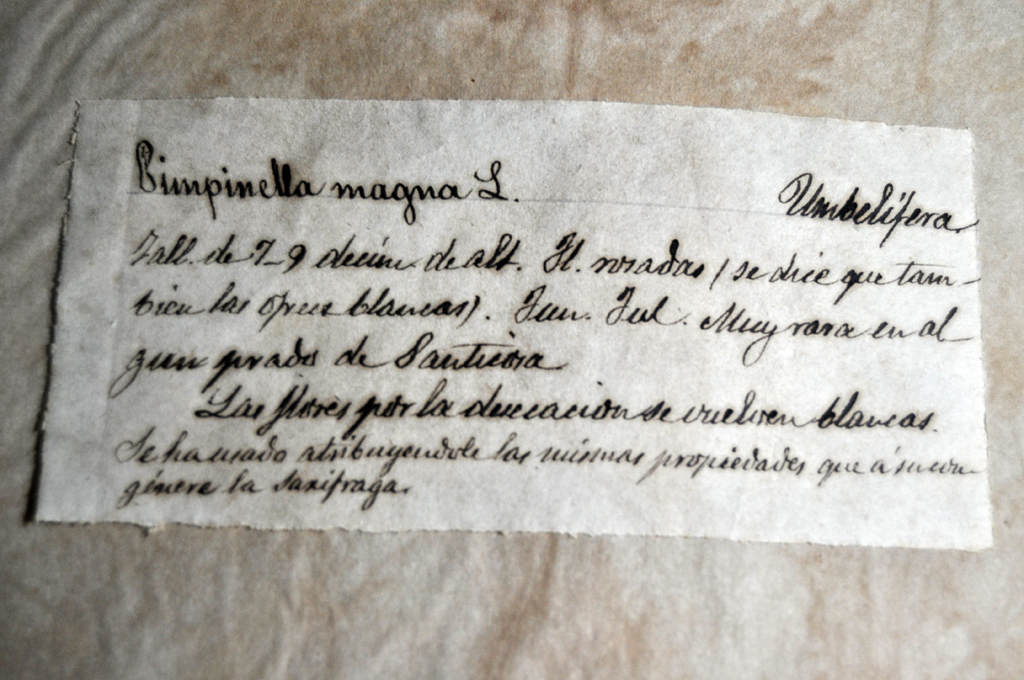 Pimpinella magna L. Umbelífera
Tall. de 7-9 decím. de alt. Fl. rosadas (se dice que tam-
bien las ofrece blancas). Jun. Jul. Muy rara en al
gun prado de
Las flores por la desecacion se vuelven blancas.
Se ha usado atribuyendole las mismas propiedades que á su con
génere la saxifraga.